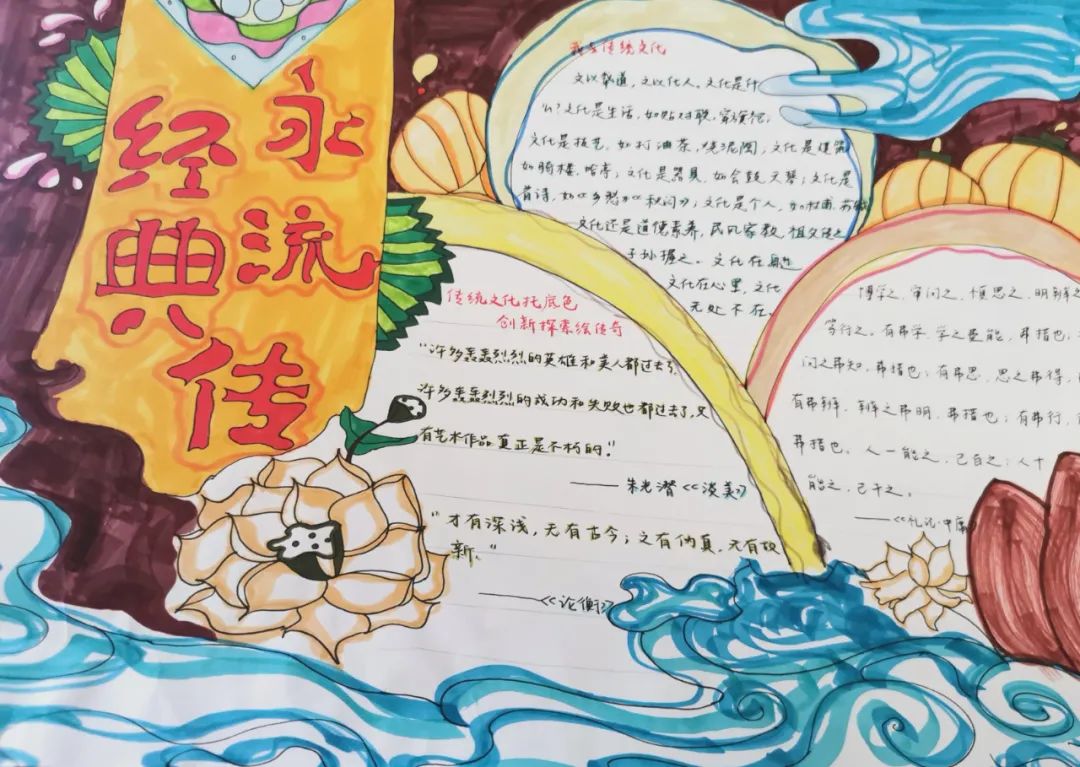 经典
永流传
我与传统文化
文以载道，文以化人。文化是什
么？文化是生活，如贴对联，穿汉服，
文化是技艺，如打油茶，烧泥陶；文化是建筑
如骑楼、哈亭；文化是器具，如会鼓天琴；文化是
首诗，如《乡愁》《秋问》；文化是个人，如杜甫、苏轼
文化还是道德素养，民风家教，祖父传之
子孙握之。文化在身边
文化在心里，文化
无处不在。
传统文化托底色
创新探索绘传奇
“许多轰轰烈烈的英雄和美人都过去了，
许多轰轰烈烈的成功和失败也都过去了，只
有艺术作品真正是不朽的。”
——朱光潜《谈美》
“才有深浅，无有古今；文有伪真，无有故
新。”
——《论衡》
博学之，审问之，慎思之，明辨之
笃行之。有弗学，学之弗能，弗措也；
问之弗知，弗措也；有弗思，思之弗得，
有弗辨，辨之弗明，弗措也；有弗行，
弗措也。人一能之，己百之；人十
能之，己千之。
——《礼记·中庸》